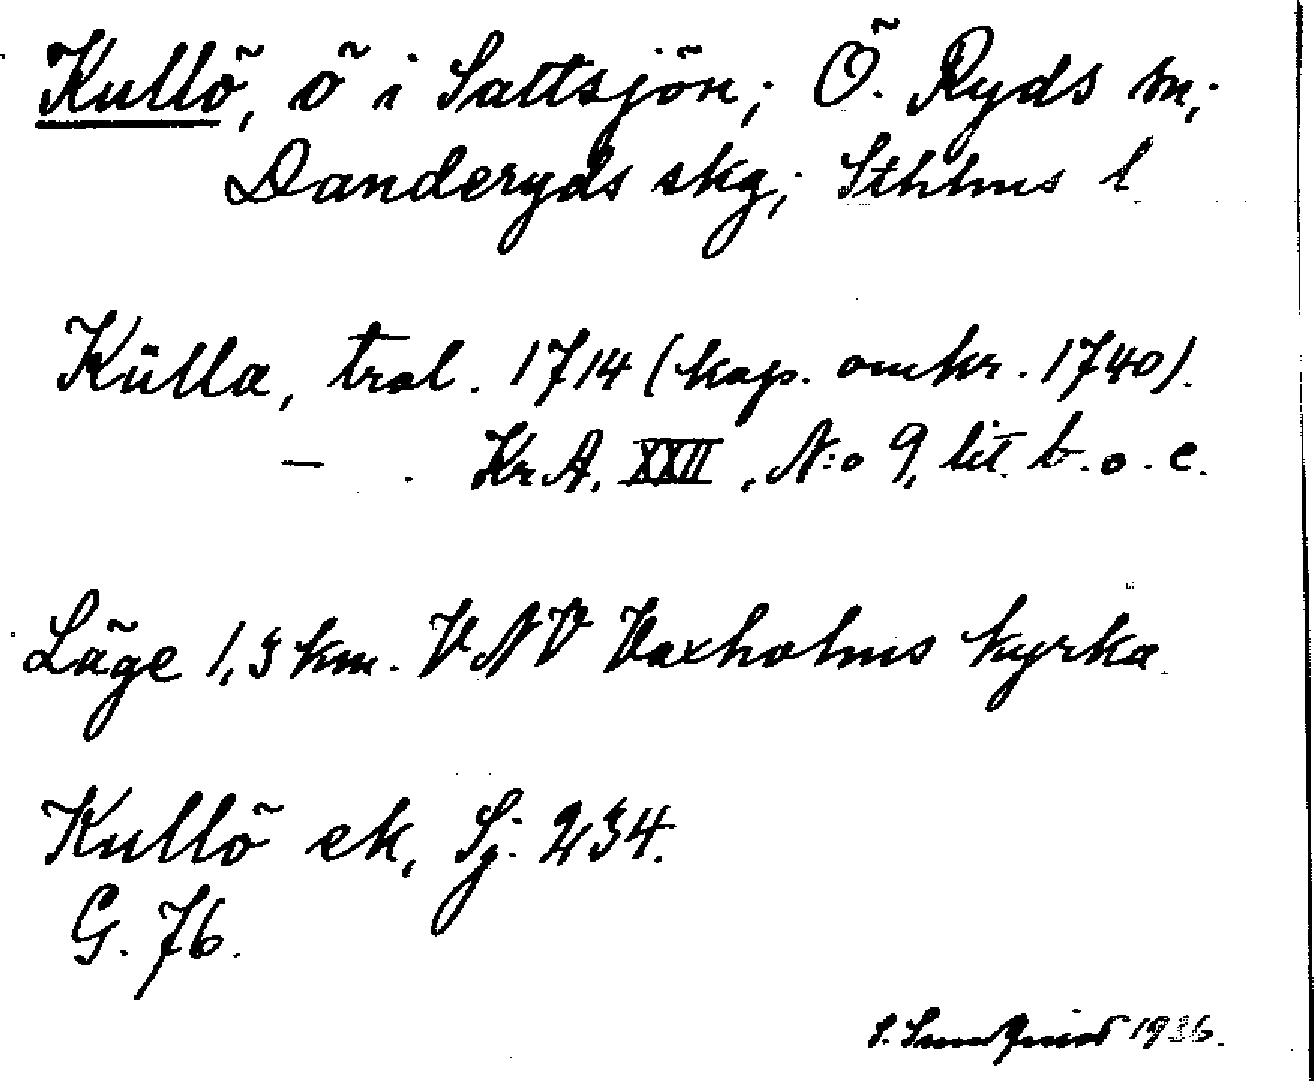 Kullö, ö i Saltsjön; Ö. Ryds sn;
Danderyds skg; Sthlms l
Külla, tral. 1714 (kop. omkr. 1740).
— . KrA, XXII, N:o 9, lit. b. o. c.
Läge 1,3 km. VNV Vaxholms kyrka
Kullö ek, Sj. 234.
G. 76.
S. 1936.